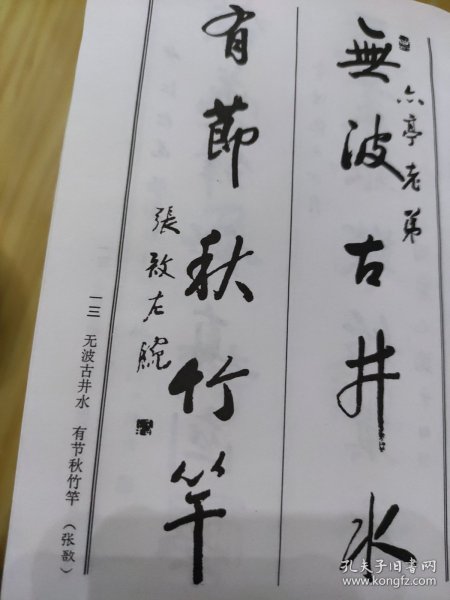 無波古井水
六亭老弟
有節秋竹竿
張敔左腕
一三　无波古井水　有节秋竹竿　（张敔）
孔夫子旧书网
www.kongfz.com